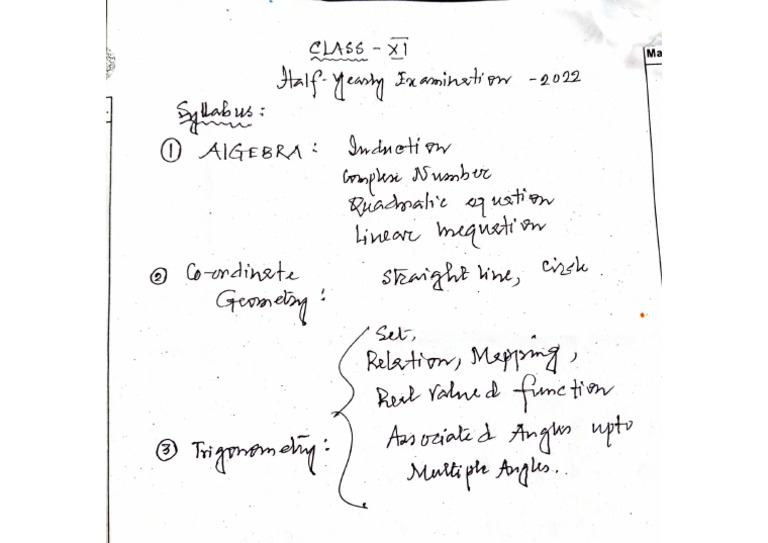 CLASS - XI
Ma
Half-Yearly Examination - 2022
Syllabus:
① AlGEBRA: Induction
Complex Number
Quadratic equation
Linear Inequation
② Co-ordinate Straight line, Circle.
Geometry:
Set,
Relation, Mapping,
Real valued function
③ Trigonometry: Associated Angles upto
Multiple Angles..